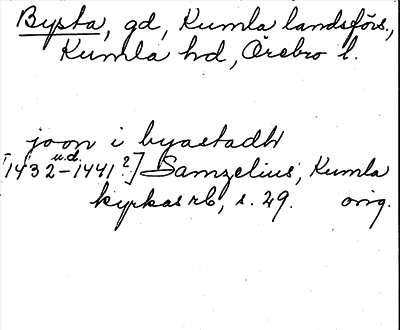 Bysta, gd, Kumla landsförs.,
Kumla hd, Örebro l.
joon i byastadh
u.d.
[1432-1441?] Samzelius, Kumla
kyrkas rb, s. 29. orig.